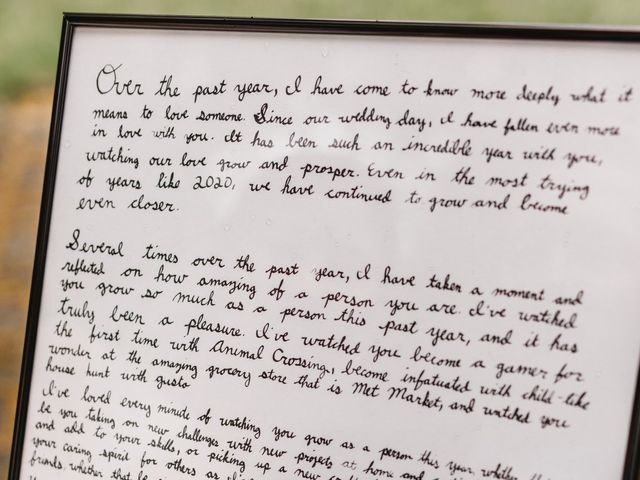 Over the past year, I have come to know more deeply what it
means to love someone. Since our wedding day, I have fallen even more
in love with you. It has been such an incredible year with you,
watching our love grow and prosper. Even in the most trying
of years like 2020, we have continued to grow and become
even closer.
Several times over the past year, I have taken a moment and
reflected on how amazing of a person you are. I've watched
you grow so much as a person this past year, and it has
truly been a pleasure. I've watched you become a gamer for
the first time with Animal Crossing, become infatuated with child-like
wonder at the amazing grocery store that is Met Market, and watched you
house hunt with gusto
I've loved every minute of watching you grow as a person this year, whether
be you taking on new challenges with new projects at home and
and add to your skills, or picking up a new
your caring spirit for others as
friends, whether that